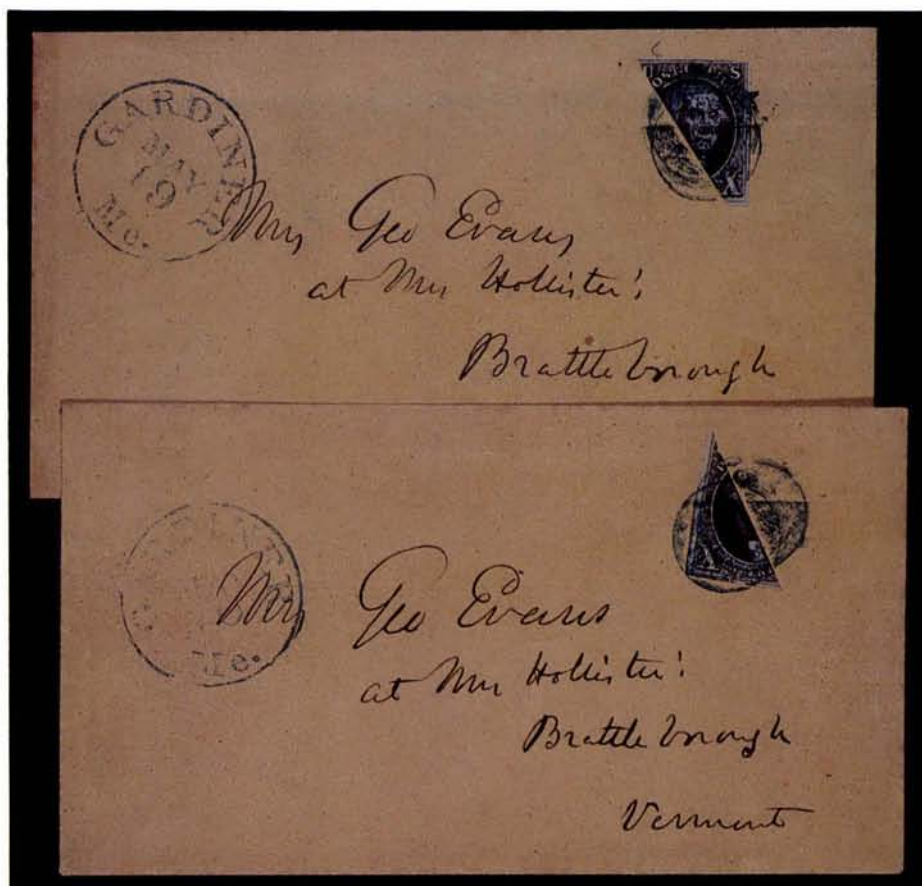 GARDINER
MAY
19
Me.
X
Mrs Geo Evans
at Mrs Hollister's
Brattleborough
Me.
X
Mrs Geo Evans
at Mrs Hollister's
Brattleborough
Vermont